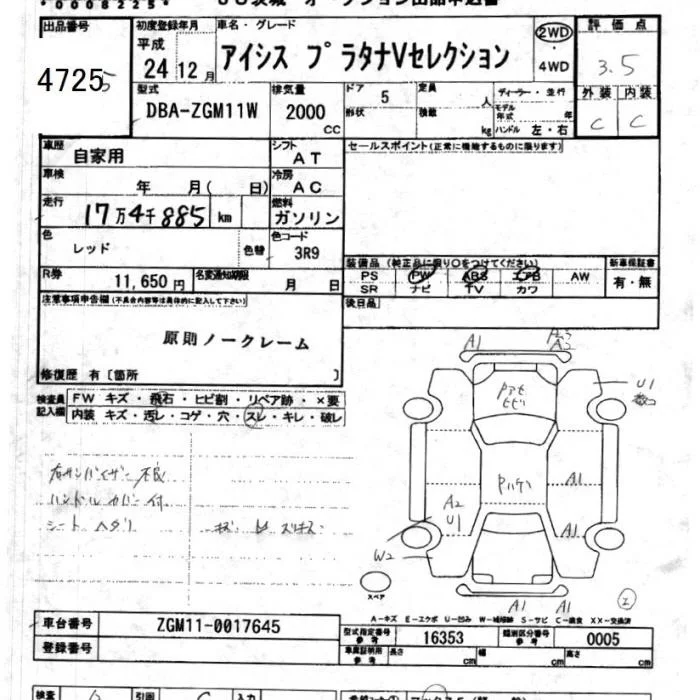 *00082225*
JU茨城 オークション出品申込書
出品番号 初度登録年月 車名・グレード 2WD 評価点
4725 平成 24 12月 アイシス プラタナVセレクション 4WD 3.5
型式 排気量 ドア 5 定員 人 ディーラー・並行 外装 内装
DBA-ZGM11W 2000 CC 形状 積載 kg モデル年式 年 C C
ハンドル 左・右
車歴 自家用 シフト AT セールスポイント(正常に機能するものに限ります)
車検 年 月( 日) 冷房 AC
走行 17万4千885 km 燃料 ガソリン
色 レッド 色替 色コード 3R9 装備品(純正品に限り○をつけてください) 新車保証書
PS PW ABS エアB AW 有・無
R券 11,650円 名変通知期限 月 日 SR ナビ TV カワ
注意事項申告欄(不具合内容等は具体的に記入して下さい) 後日品
原則ノークレーム
修復歴 有〔箇所 〕
検査員 FW キズ・飛石・ヒビ割・リペア跡・×要
記入欄 内装 キズ・汚レ・コゲ・穴・スレ・キレ・破レ
右サンバイザー不良
ハンドルカバー付
シート ヘタリ
A1
A2
U1
A1
A2
U1
A1
W2
A1 A1
スペア
A-キズ E-エクボ U-凹み W-補修跡 S-サビ C-腐食 XX-交換済
車台番号 ZGM11-0017645 型式指定番号 参考 16353 類別区分番号 参考 0005
登録番号 車庫証明用 参考 長さ cm 幅 cm 高さ cm
検査 引回 入力